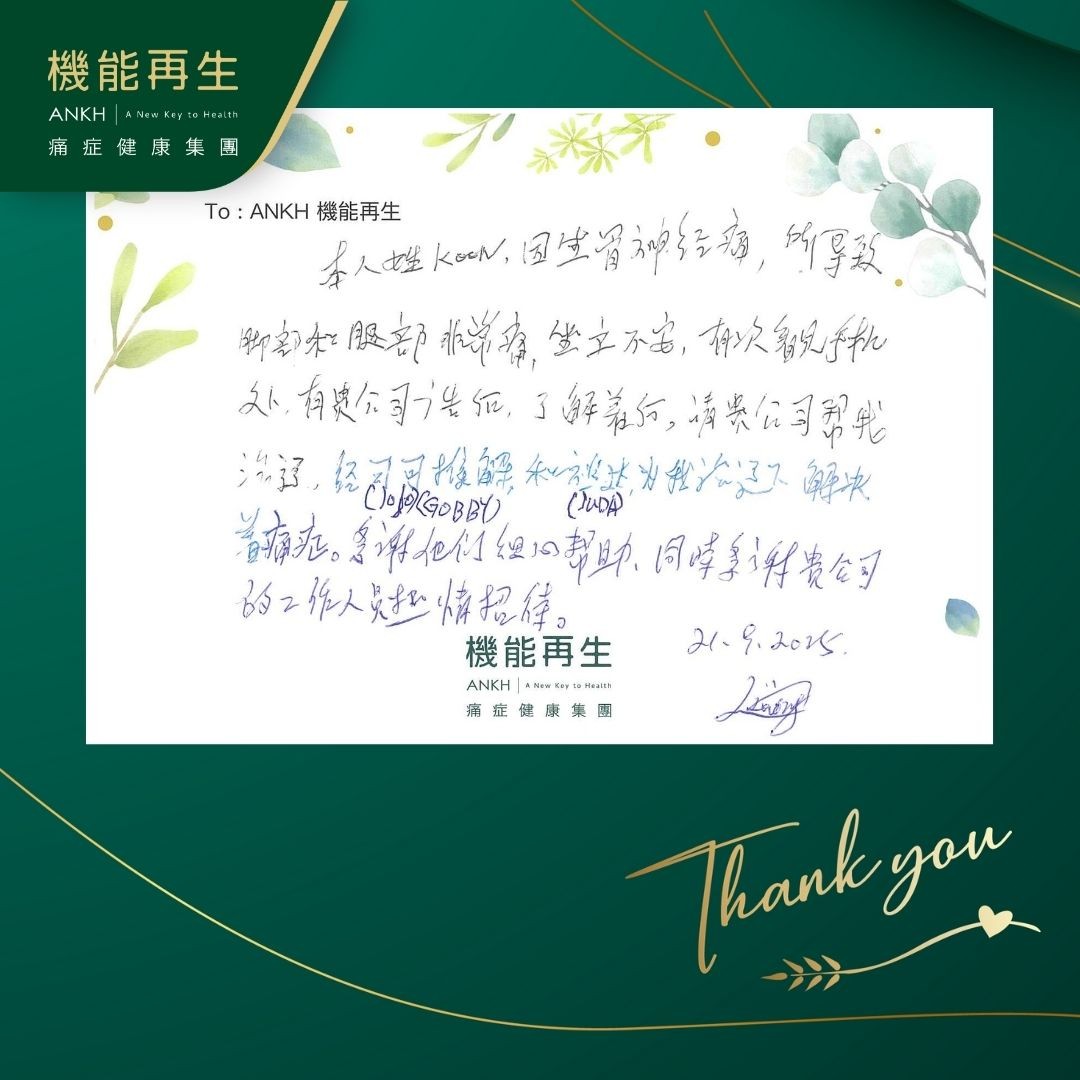 機能再生
ANKH | A New Key to Health
痛症健康集團
To : ANKH 機能再生
本人姓Koon, 因坐骨神经痛, 所导致
脚部和腿部非常痛, 坐立不安, 有次看见手机
处, 有贵公司广告后, 了解着后。请贵公司帮我
治疗, 经 和 为我治疗 解决
(JoJo) (GOBBY) (JUDA)
着痛症。多谢他们细心帮助, 同时多谢贵公司
的工作人员热情招待。
21.9.2025.
機能再生
ANKH | A New Key to Health
痛症健康集團
Thank you